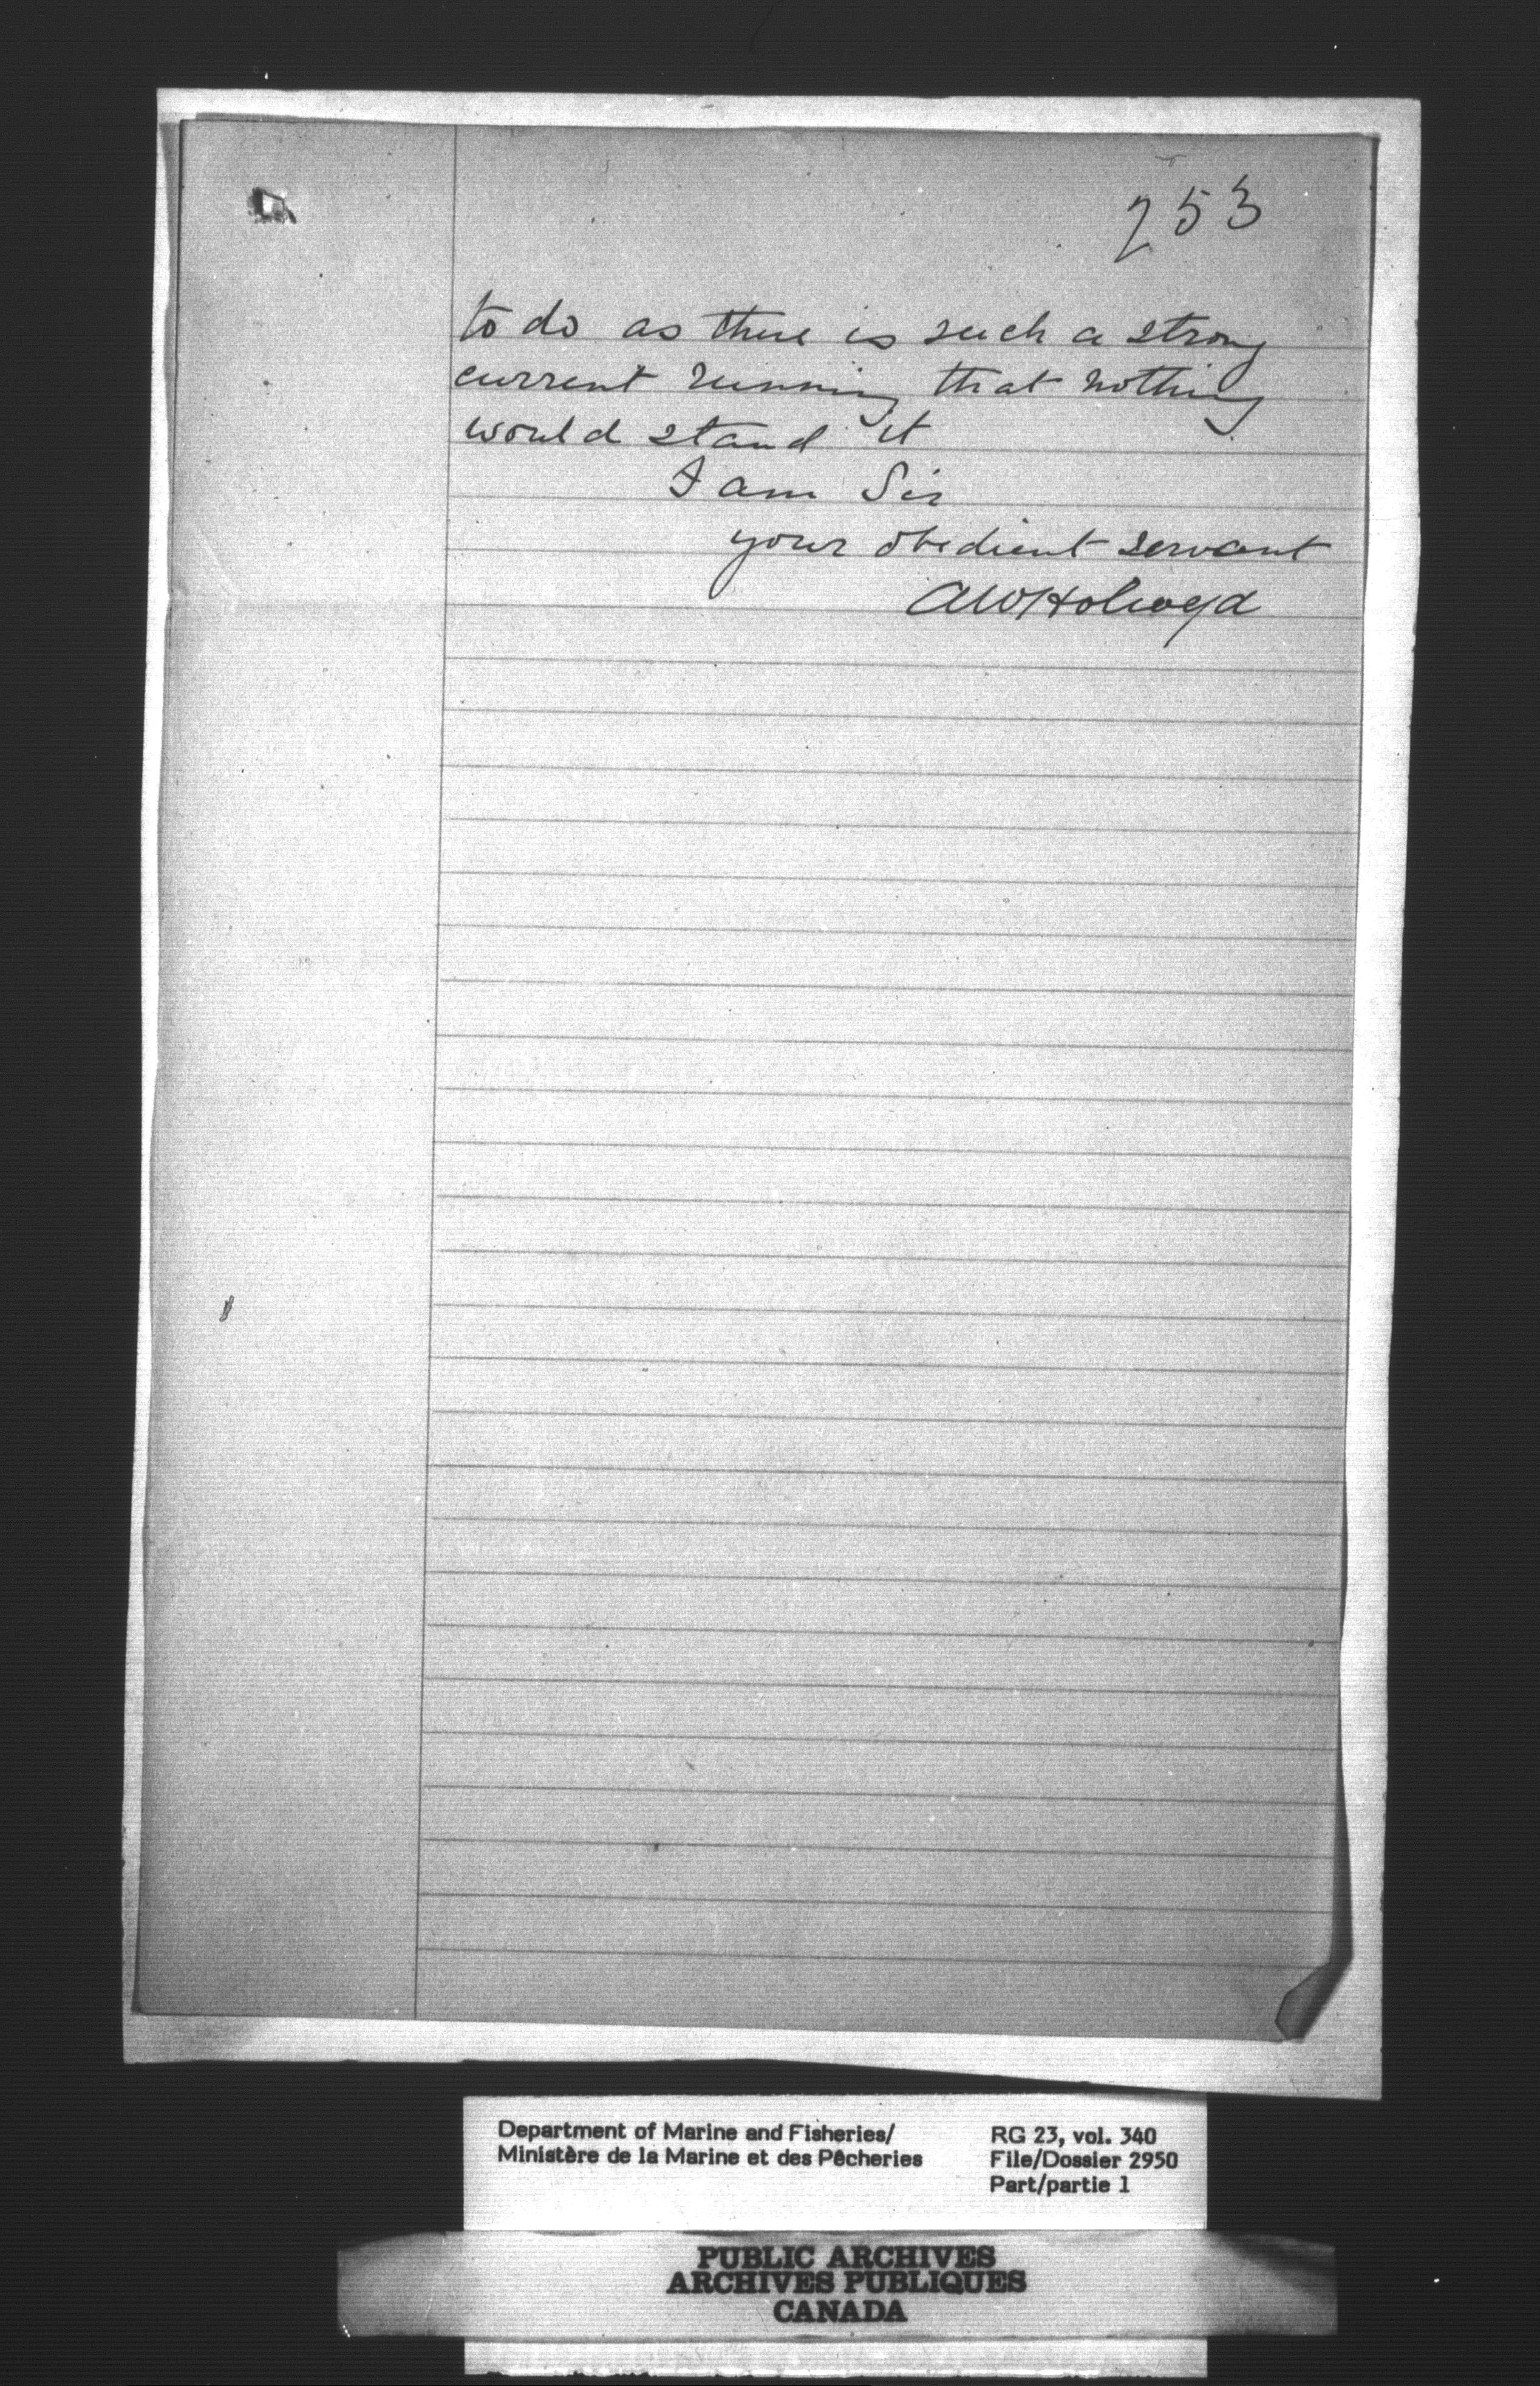 253
to do as there is such a strong
current running that nothing
would stand it
I am Sir
your obedient servant
AWHolroyd
Department of Marine and Fisheries/
Ministère de la Marine et des Pêcheries
RG 23, vol. 340
File/Dossier 2950
Part/partie 1
PUBLIC ARCHIVES
ARCHIVES PUBLIQUES
CANADA